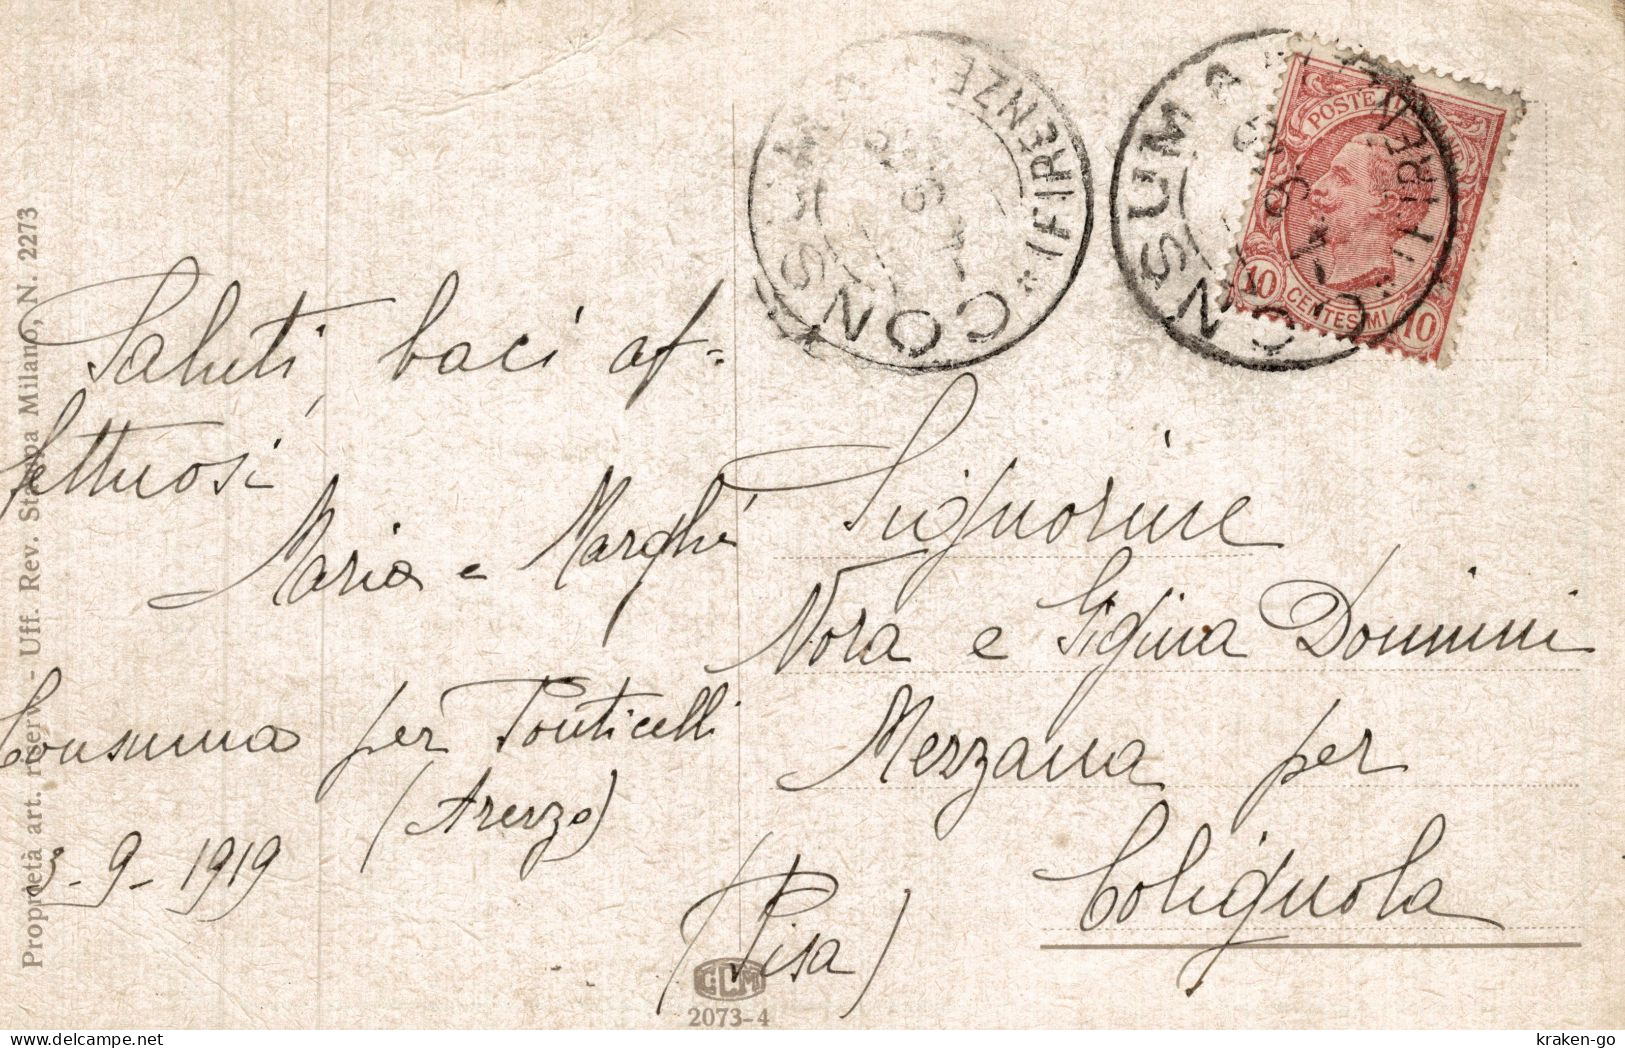 Saluti, baci af=
fettuosi
Maria e Marghe
Consuma per Ponticelli
(Arezzo)
3-9-1919
Signorine
Nora e Gigina Dominini
Mezzana per
Colignola
(Pisa)
CONSUMA
*(FIRENZE)
CONSUMA
*(FIRENZE)
POSTE ITALIANE
10 CENTESIMI 10
Proprietà art. riserv. - Uff. Rev. Stampa Milano, N. 2273
GLM
2073-4
kraken-go